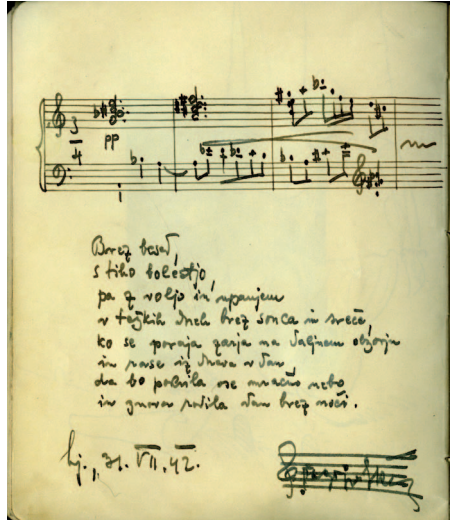 3
4
pp
Brez besed,
s tiho bolestjo,
pa z voljo in upanjem
v težkih dneh brez sonca in sreče,
ko se poraja zarja na daljnem obzorju
in rase iz dneva v dan,
da bo polnila vse mračno nebo
in znova rodila dan brez noči.
Lj., 31. VII. 42.